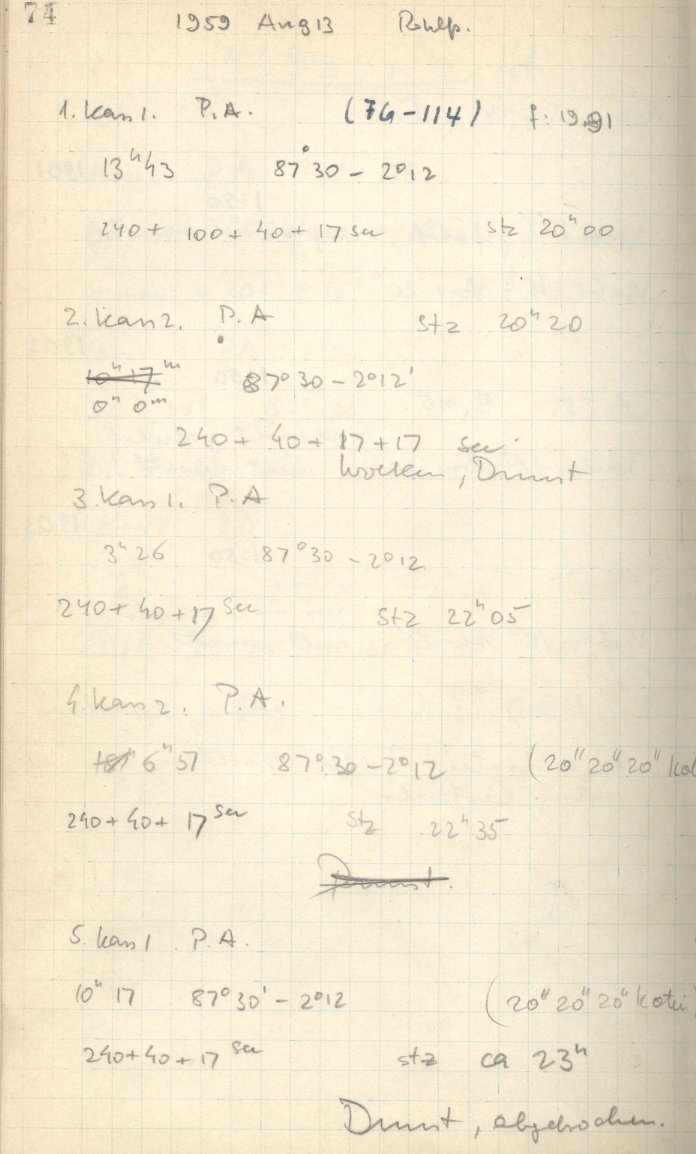 74
1959 Aug 13 Rohlf.
1. Kass 1. P.A. (76-114) f: 19.91
13ʰ43 87°30 - 2°12
240 + 100 + 40 + 17 sec stz 20ʰ00
2. Kass 2. P.A stz 20ʰ20
10ʰ17ᵐ 87°30 - 2°12'
0ʰ 0ᵐ
240 + 40 + 17 + 17 sec
Wolken, Dunst
3. Kass 1. P.A
3ʰ26 87°30 - 2°12
240 + 40 + 17 sec stz 22ʰ05
4. Kass 2. P.A.
6ʰ51 87°30 - 2°12 (20ʰ20ʰ20ʰ
240 + 40 + 17 sec stz 22ʰ35
Dunst.
5. Kass 1 P.A.
10ʰ17 87°30' - 2°12 (20ʰ20ʰ20ʰ
240 + 40 + 17 sec stz ca 23ʰ
Dunst, abgebrochen.